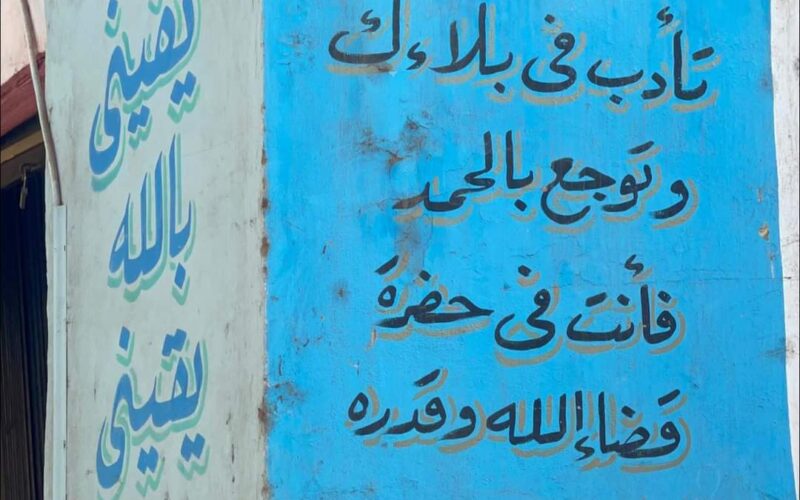 تأدب في بلاءك
وتوجع بالحمد
فأنت في حضرة
قضاء الله وقدره
يقيني
بالله
يقيني